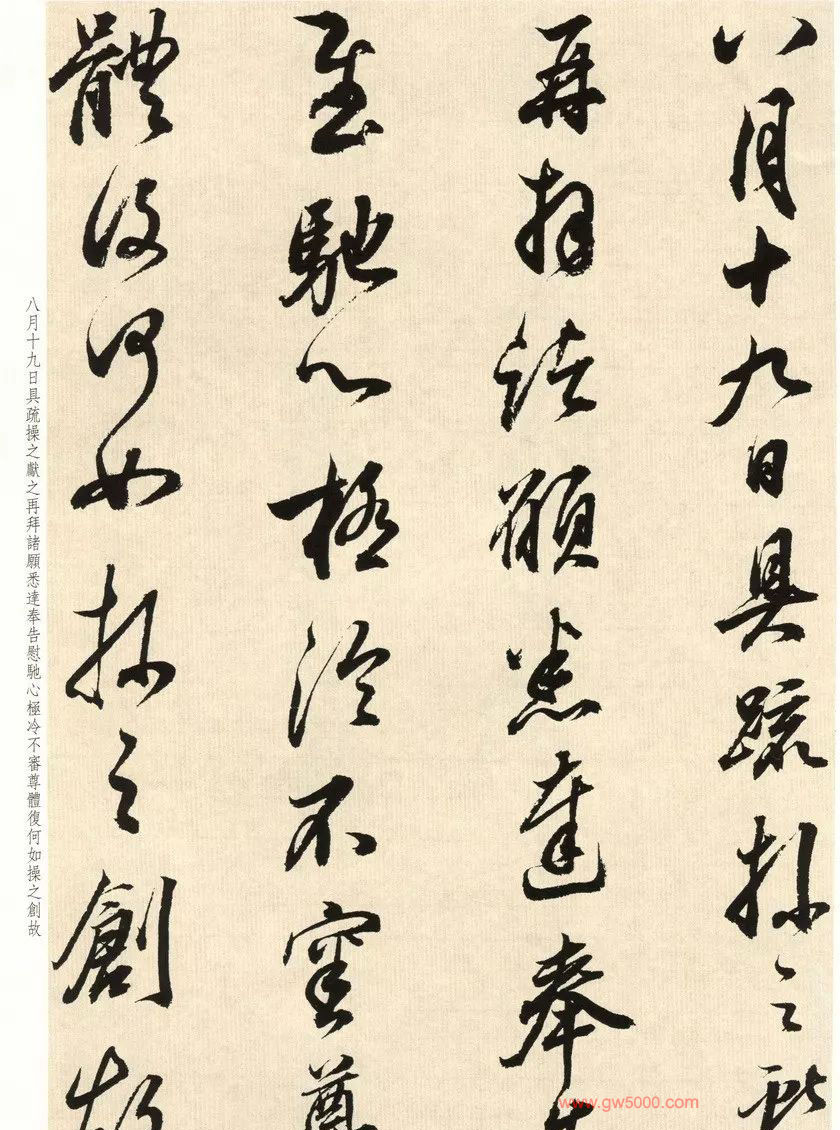 八月十九日具疏操之獻
再拜諸願悉達奉告
慰馳心極冷不審尊
體復何如操之創故
八月十九日具疏操之獻之再拜諸願悉達奉告慰馳心極冷不審尊體復何如操之創故
www.gw5000.com